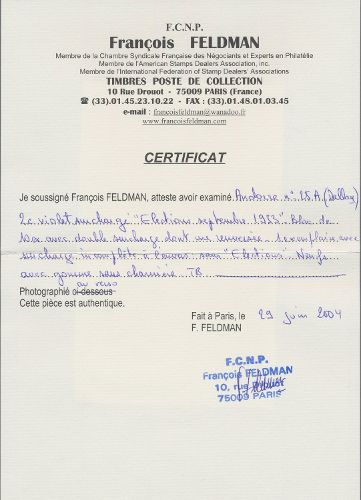 F.C.N.P.
François FELDMAN
Membre de la Chambre Syndicale Française des Négociants et Experts en Philatélie
Membre of American Stamps Dealers Association, inc.
Membre de l'International Federation of Stamp Dealers' Associations
TIMBRES POSTE DE COLLECTION
10 Rue Drouot - 75009 PARIS (France)
☎ (33).01.45.23.10.22 - FAX : (33).01.48.01.03.45
e-mail : francoisfeldman@wanadoo.fr
www.francoisfeldman.com
CERTIFICAT
Je soussigné François FELDMAN, atteste avoir examiné Andorre n° 25A (Dallay)
2c violet surchargé "Elections septembre 1953" Bloc de
10ex avec double surcharge dont une renversée 1 exemplaire avec
surcharge incomplète à l'envers sans Elections Neufs
avec gomme sans charnière TB
au verso
Photographié ci-dessous
Cette pièce est authentique.
Fait à Paris, le 29 juin 2004
F. FELDMAN
F.C.N.P.
François FELDMAN
10, rue Drouot
75009 PARIS